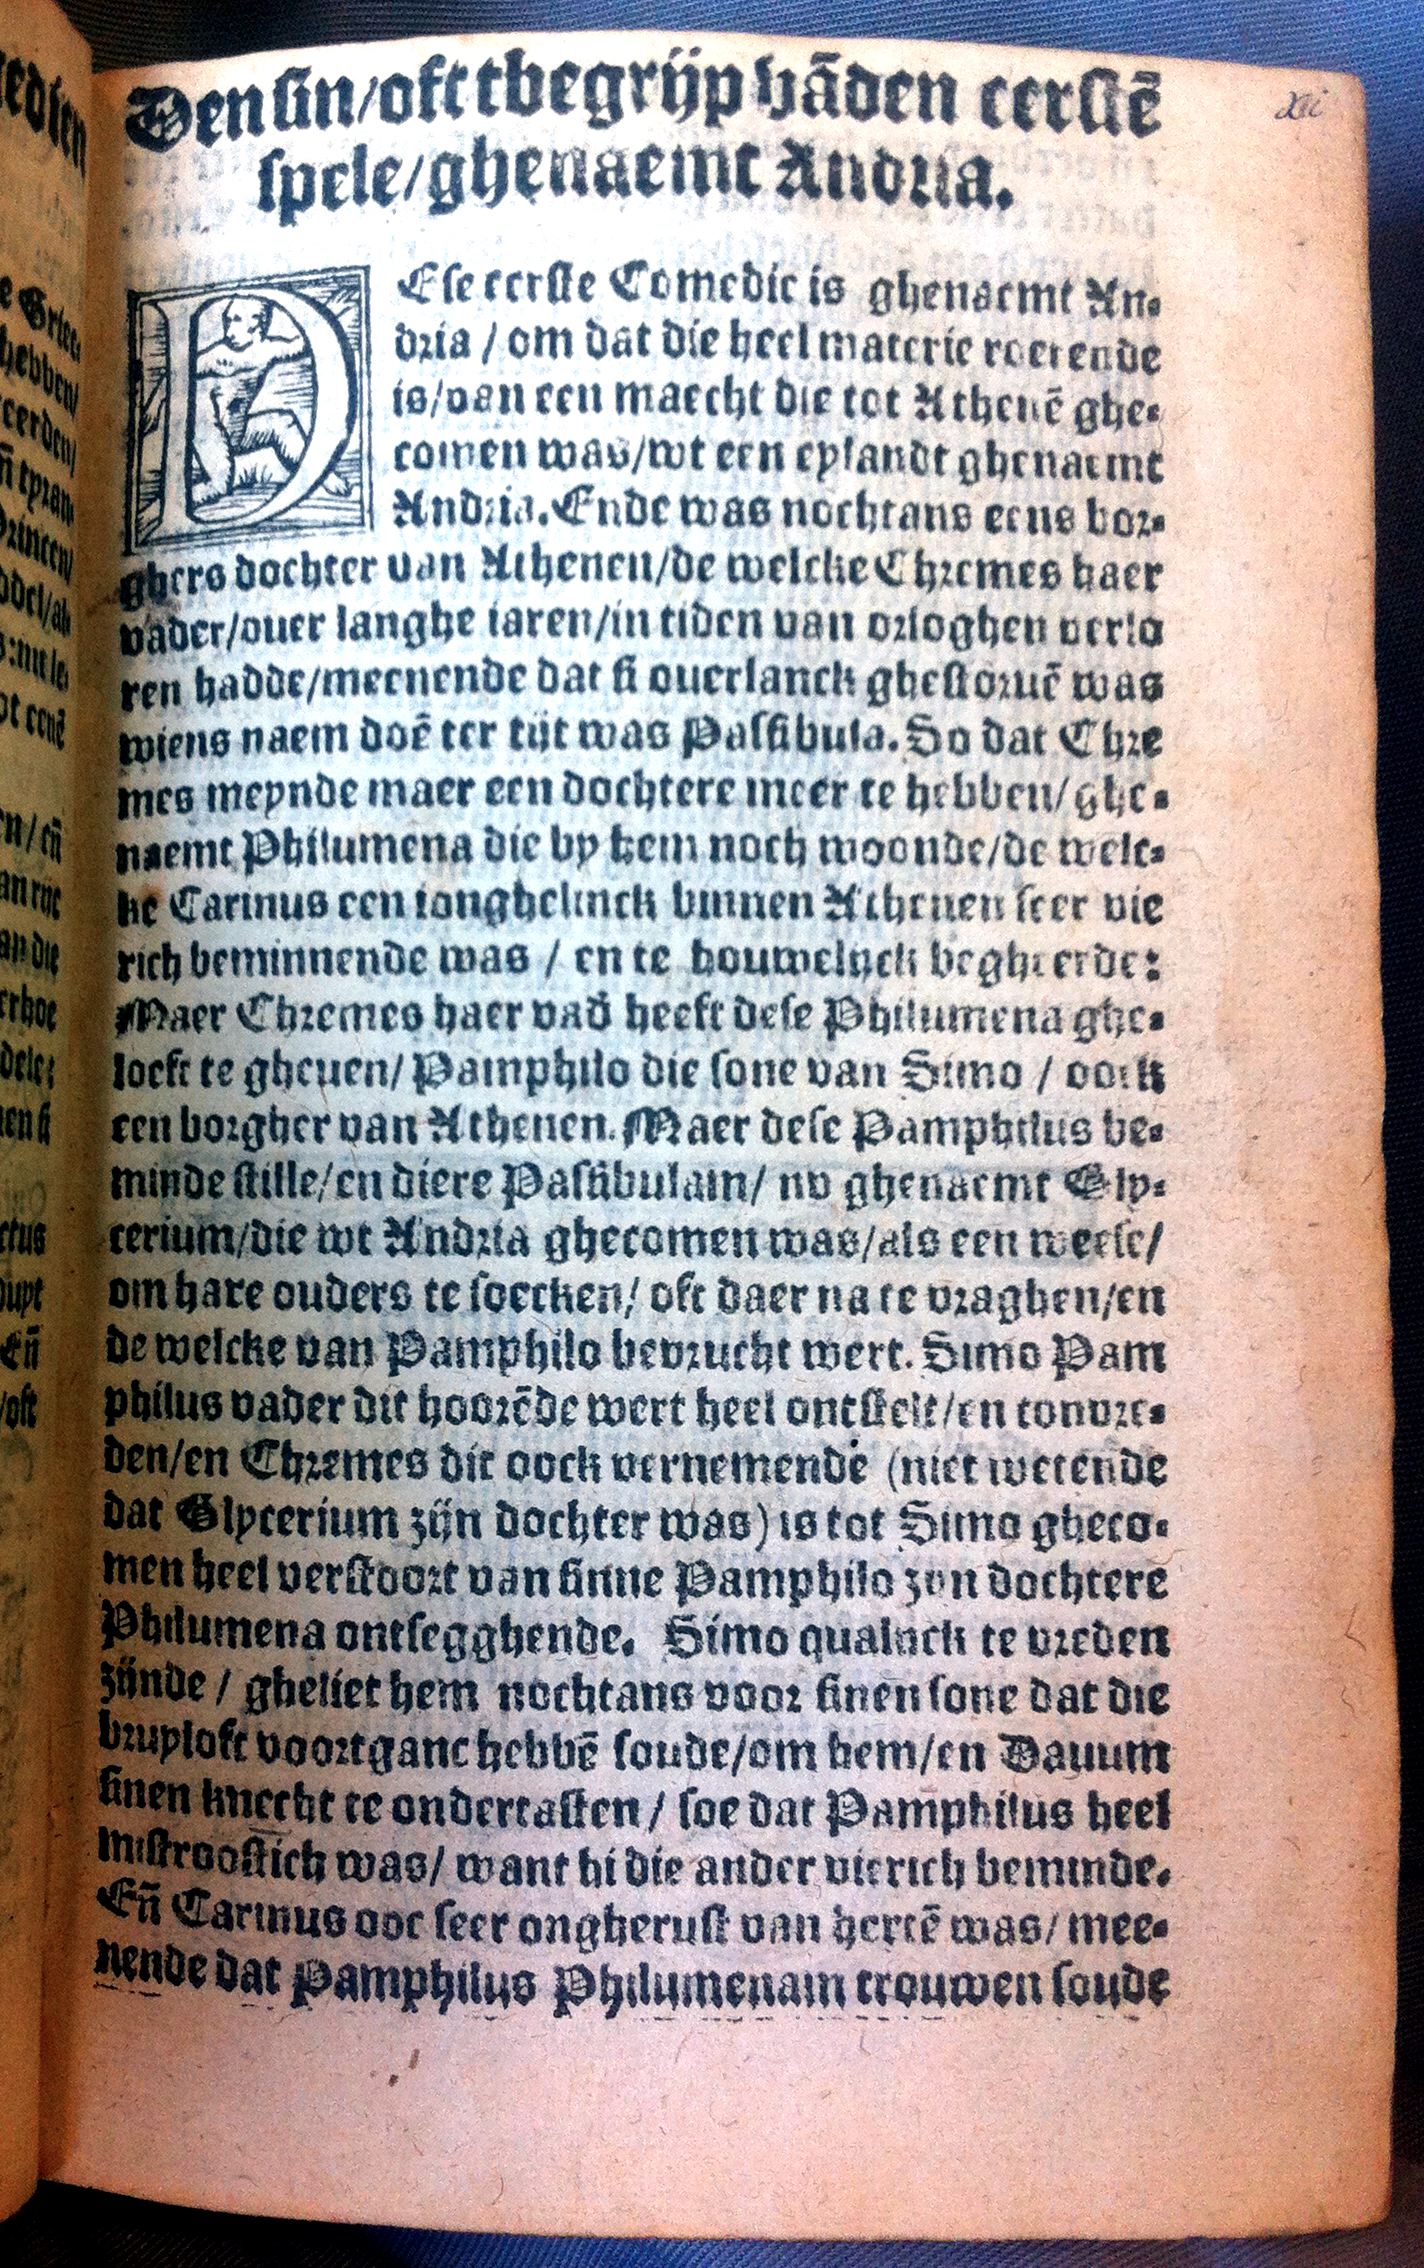 xii
Den sin/oft tbegrijp vāden eerstē
spele/ghenaemt Andria.
DEse eerste Comedie is ghenaemt An-
dria / om dat die heel materie roerende
is/van een maecht die tot Athenē ghe-
comen was/wt een eylandt ghenaemt
Andria. Ende was nochtans eens bor-
ghers dochter van Athenen/de welcke Chremes haer
vader/ouer langhe iaren/in tiden van orloghen verlo
ren hadde/meenende dat si ouerlanck ghestoruē was
wiens naem doē ter tijt was Passibula. So dat Chre
mes meynde maer een dochtere meer te hebben/ghe-
naemt Philumena die by hem noch woonde/de welc-
ke Carinus een ionghelinck binnen Athenen seer vie
rich beminnende was / en te houwelijck begheerde:
Maer Chremes haer vad̕ heeft dese Philumena ghe-
loeft te gheuen/ Pamphilo die sone van Simo / oock
een borgher van Athenen. Maer dese Pamphilus be-
minde stille/en diere Passibulam/ nv ghenaemt Gly-
cerium/die wt Andria ghecomen was/als een weese/
om hare ouders te soecken/ oft daer na te vraghen/en
de welcke van Pamphilo bevrucht wert. Simo Pam
philus vader dit hoorēde wert heel ontstelt/en tonvre-
den/en Chremes dit oock vernemende (niet wetende
dat Glycerium zijn dochter was) is tot Simo gheco-
men heel verstoort van sinne Pamphilo zyn dochtere
Philumena ontsegghende. Simo qualijck te vreden
zijnde / gheliet hem nochtans voor sinen sone dat die
bruyloft voortganc hebbē soude/om hem/en Dauum
sinen knecht te ondertasten / soe dat Pamphilus heel
mistroostich was/ want hi die ander vierich beminde.
Eñ Carinus ooc seer ongherust van hertē was/ mee-
nende dat Pamphilus Philumenam trouwen soude